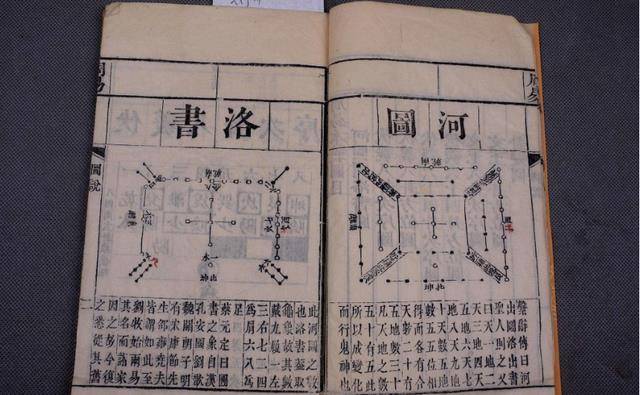 周易
河圖
繫辭傳曰河
出圖洛出書
聖人則之又
曰天一地二
天三地四天
五地六天七
地八天九地
十天數五地
數五五位相
得而各有合
天數二十有
五地數三十
凡天地之數
五十有五此
所以成變化
而行鬼神也
洛書
此河圖之數
也洛書蓋取
龜象故其數
戴九履一左
三右七二四
爲肩六八爲
足
蔡元定曰圖
書之象自漢
孔安國劉歆
魏關朗子明
有宋康節先
生邵雍堯夫
皆謂如此至
劉牧始兩易
其名而諸家
因之故今復
之悉從其舊
周易
圖說
二